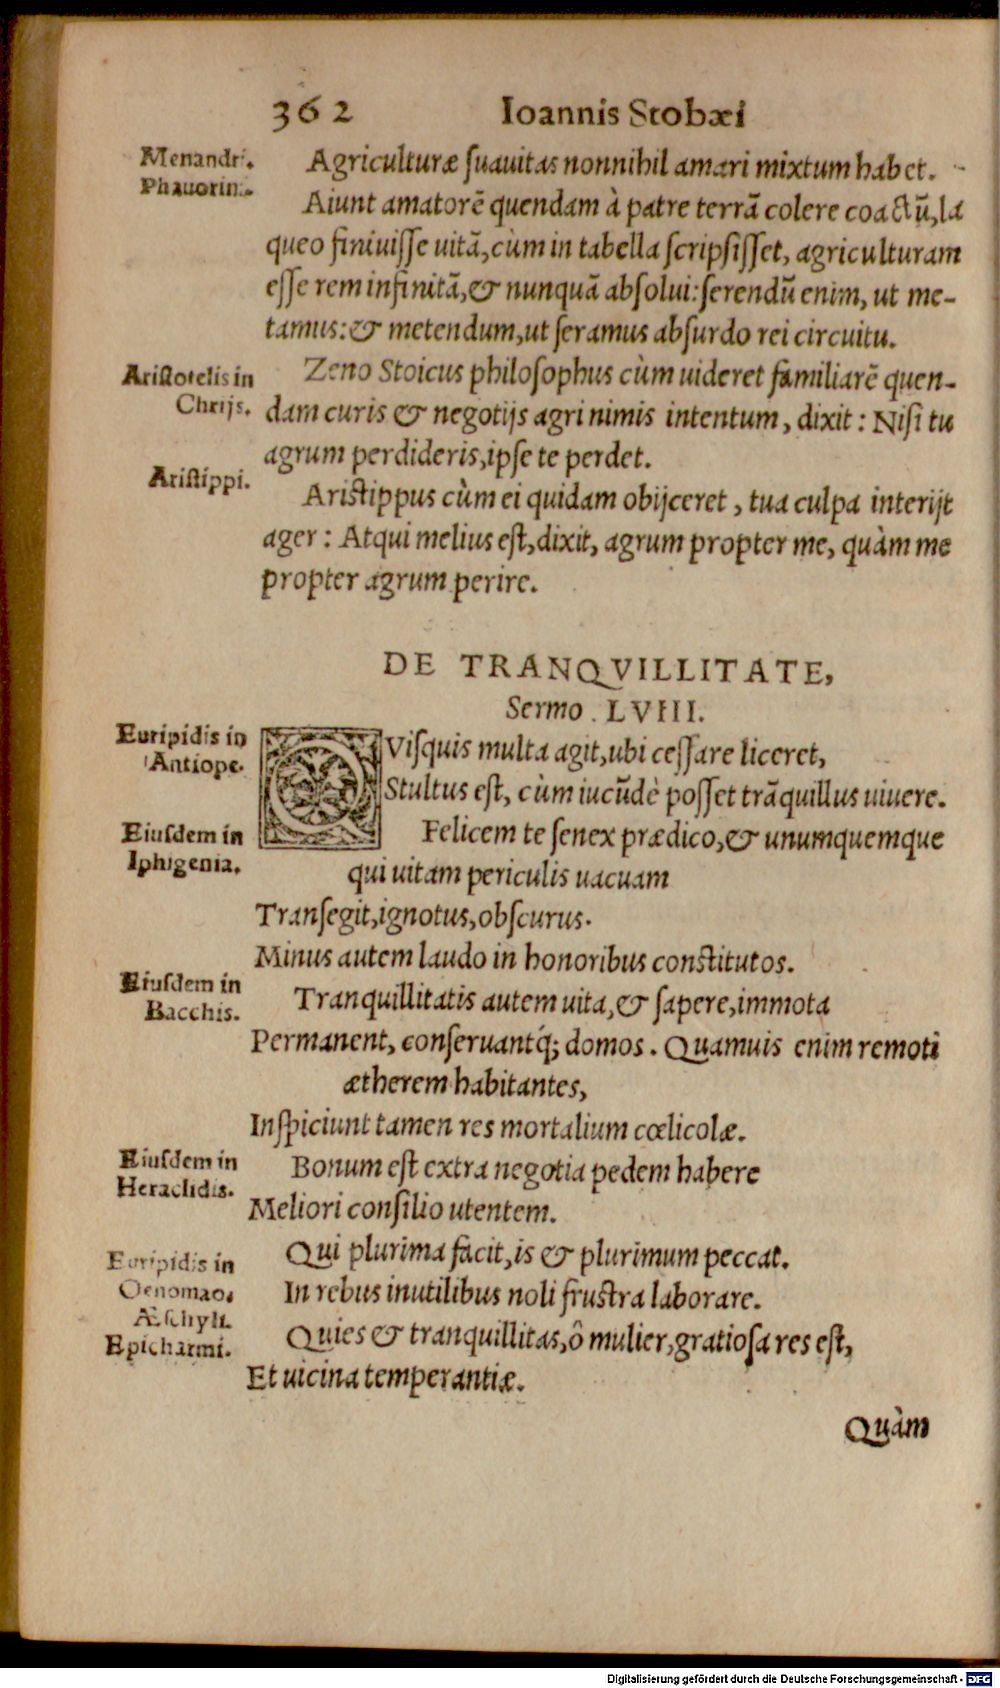 362 Ioannis Stobæi
Menandri. Agriculturæ ſuauitas nonnihil amari mixtum habet.
Phauorini. Aiunt amatorē quendam à patre terrã colere coactũ, la
queo finiuiſſe uitã, cùm in tabella ſcripſiſſet, agriculturam
eſſe rem infinitã, & nunquã abſolui: ſerendũ enim, ut me-
tamus: & metendum, ut ſeramus abſurdo rei circuitu.
Ariſtotelis in Zeno Stoicus philoſophus cùm uideret familiarē quen-
Chrijs. dam curis & negotijs agri nimis intentum, dixit: Niſi tu
agrum perdideris, ipſe te perdet.
Ariſtippi. Ariſtippus cùm ei quidam obijceret, tua culpa interijt
ager: Atqui melius eſt, dixit, agrum propter me, quàm me
propter agrum perire.
DE TRANQVILLITATE,
Sermo. LVIII.
Euripidis in QViſquis multa agit, ubi ceſſare liceret,
Antiope. Stultus eſt, cùm iucũdè poſſet trãquillus uiuere.
Eiuſdem in Felicem te ſenex prædico, & unumquemque
Iphigenia. qui uitam periculis uacuam
Tranſegit, ignotus, obſcurus.
Minus autem laudo in honoribus conſtitutos.
Eiuſdem in Tranquillitatis autem uita, & ſapere, immota
Bacchis. Permanent, conſeruantq́; domos. Quamuis enim remoti
ætherem habitantes,
Inſpiciunt tamen res mortalium cœlicolæ.
Eiuſdem in Bonum eſt extra negotia pedem habere
Heraclidis. Meliori conſilio utentem.
Euripidis in Qui plurima facit, is & plurimum peccat.
Oenomao. In rebus inutilibus noli fruſtra laborare.
Æſchyli.
Epicharmi. Quies & tranquillitas, ô mulier, gratioſa res eſt,
Et uicina temperantiæ.
Quàm
Digitalisierung gefördert durch die Deutsche Forschungsgemeinschaft - DFG